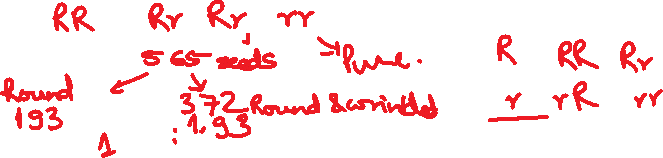 RR Rr Rr rr
565 seeds Pure.
Round 372 Round & wrinkled
193 1.93
1 :
R RR Rr
r rR rr